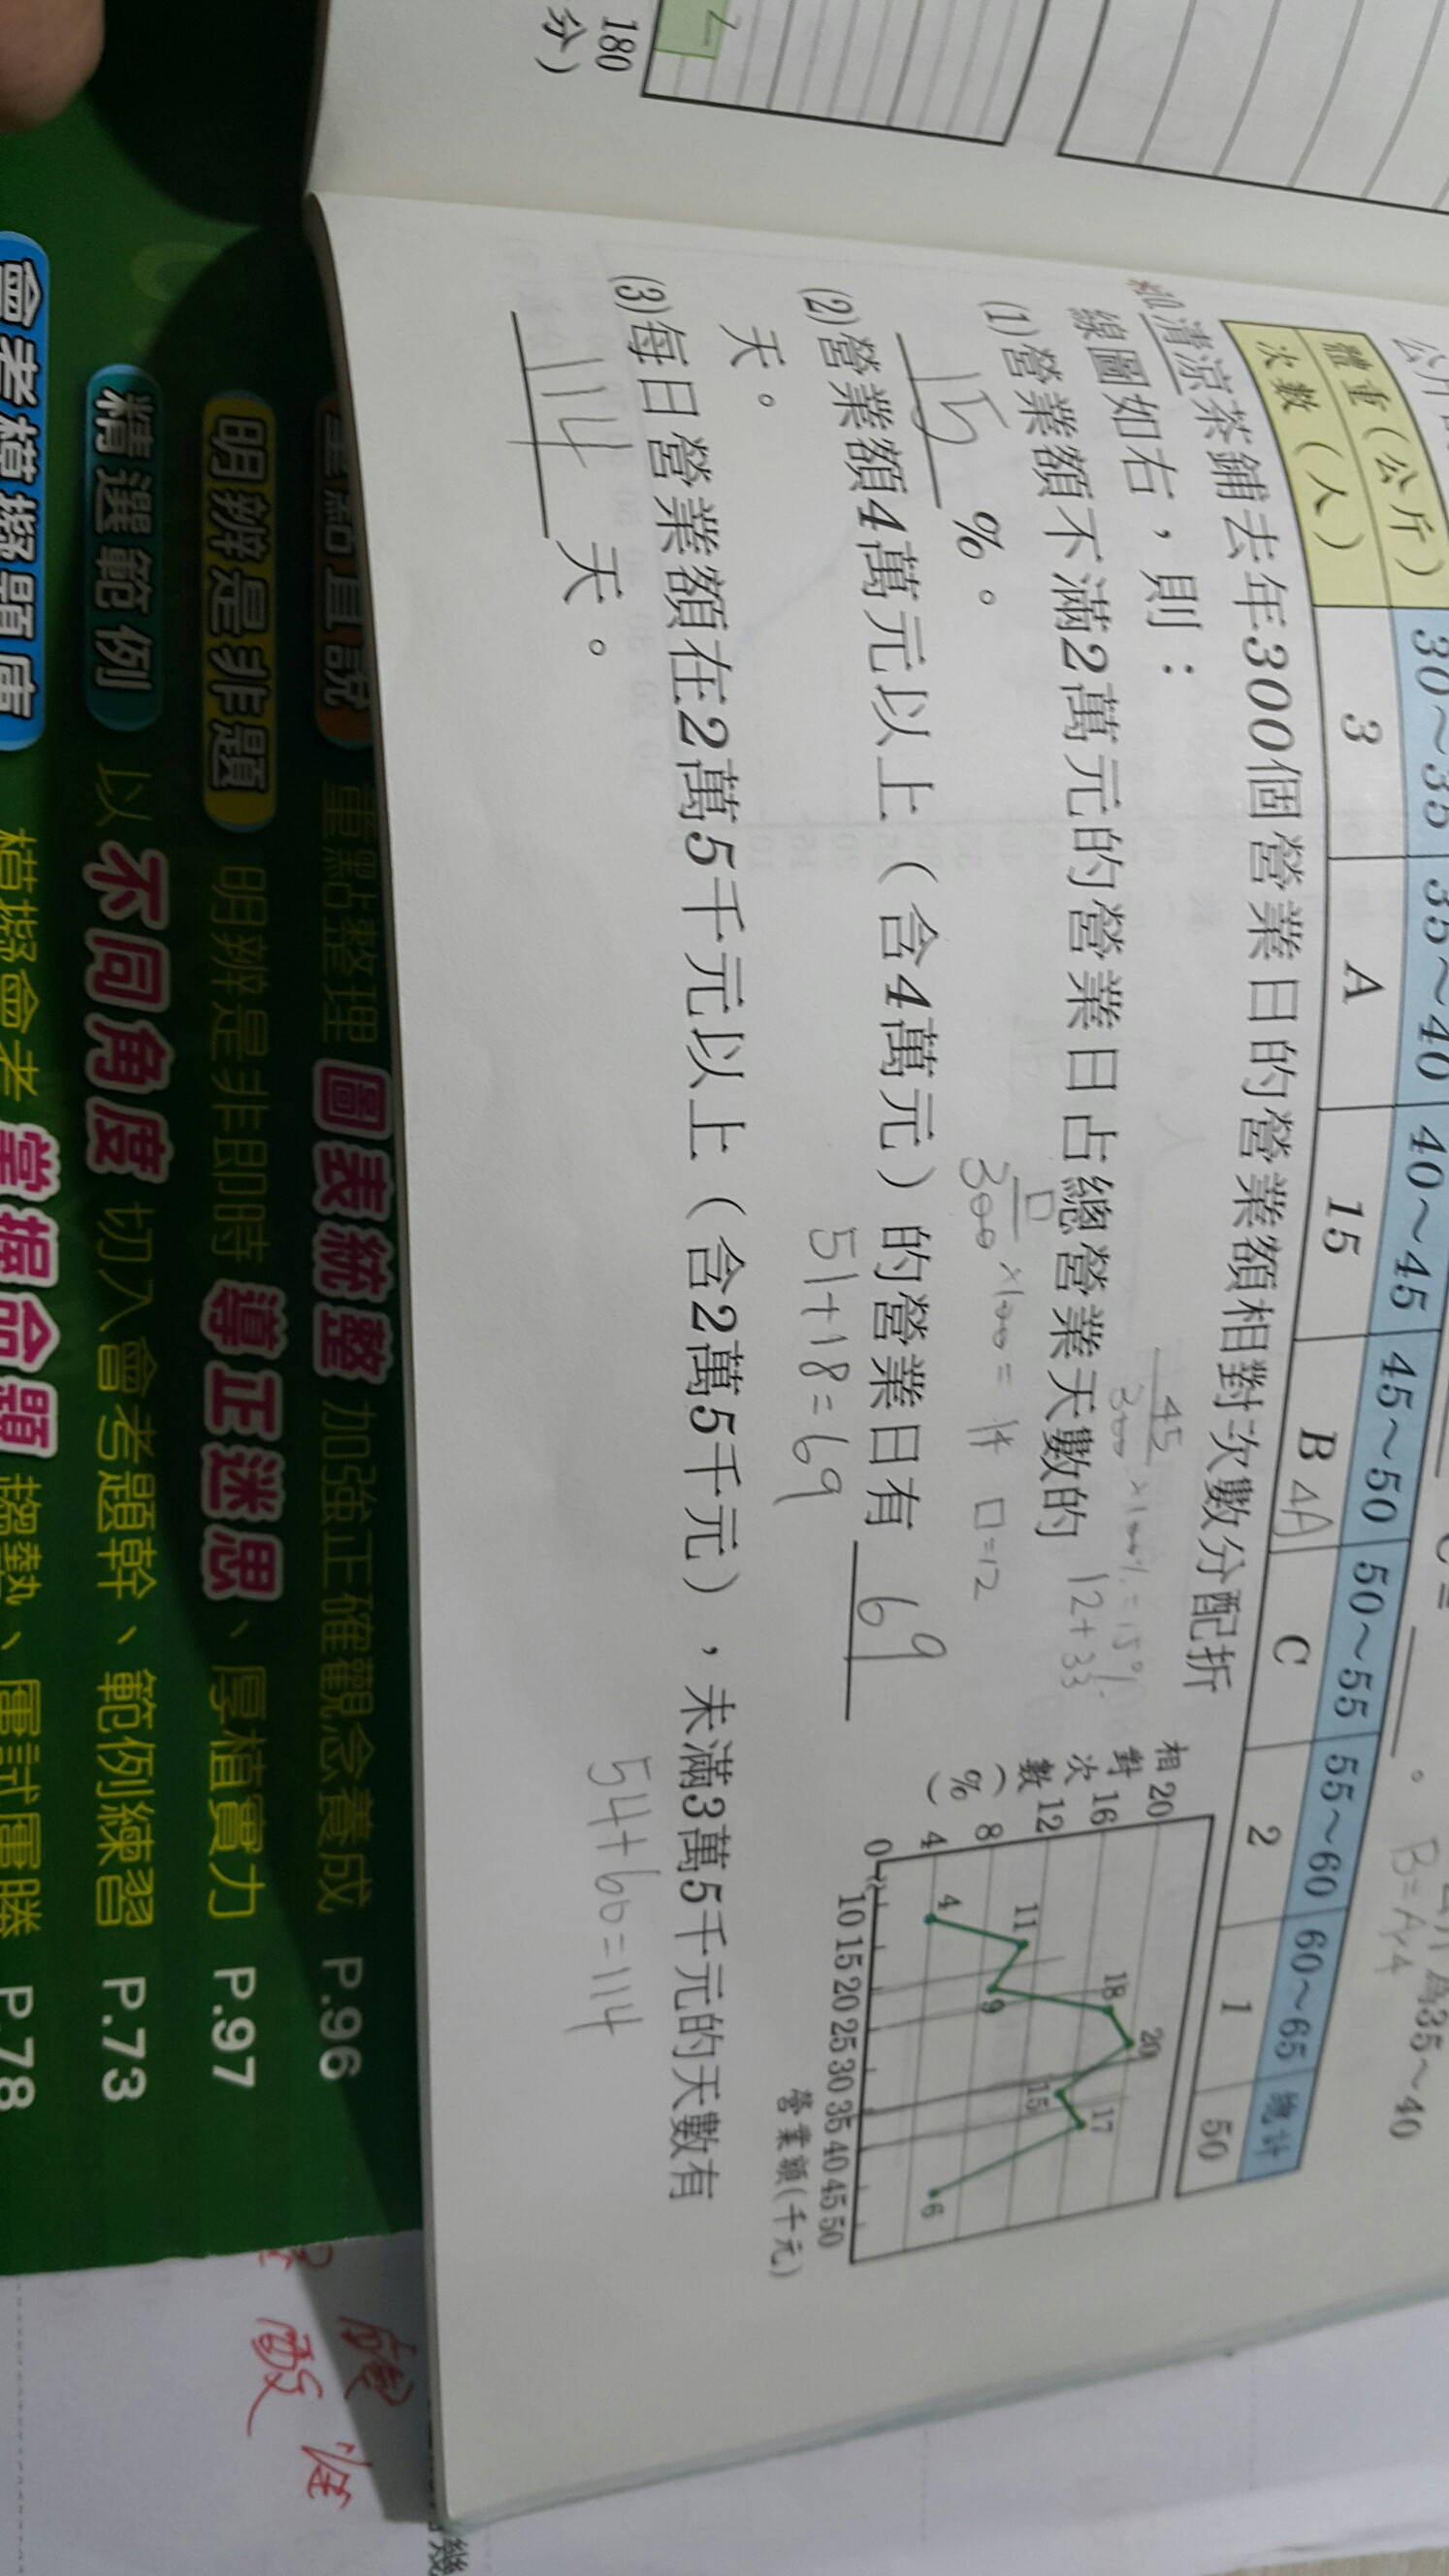 180
分)
體重(公斤) 30~35 35~40 40~45 45~50 50~55 55~60 60~65 總計
次數(人) 3 A 15 B 4A C 2 1 50
B=A×4
清涼茶鋪去年300個營業日的營業額相對次數分配折
線圖如右,則:
45/300×100%=15%
(1)營業額不滿2萬元的營業日占總營業天數的 12+33
15 %。
□/300×100=4 □=12
(2)營業額4萬元以上(含4萬元)的營業日有 69
天。
51+18=69
(3)每日營業額在2萬5千元以上(含2萬5千元),未滿3萬5千元的天數有
114 天。
54+60=114
相對次數(%)
20
16
12
8
4
0
4 11 9 18 20 15 17 6
10 15 20 25 30 35 40 45 50
營業額(千元)
重點整理 圖表統整 加強正確觀念養成 P.96
明辨是非題 明辨是非即時 導正迷思、厚植實力 P.97
精選範例 以不同角度 切入會考題幹、範例練習 P.73
會考模擬題庫 模擬會考 掌握命題 趨勢、屢試屢勝 P.78